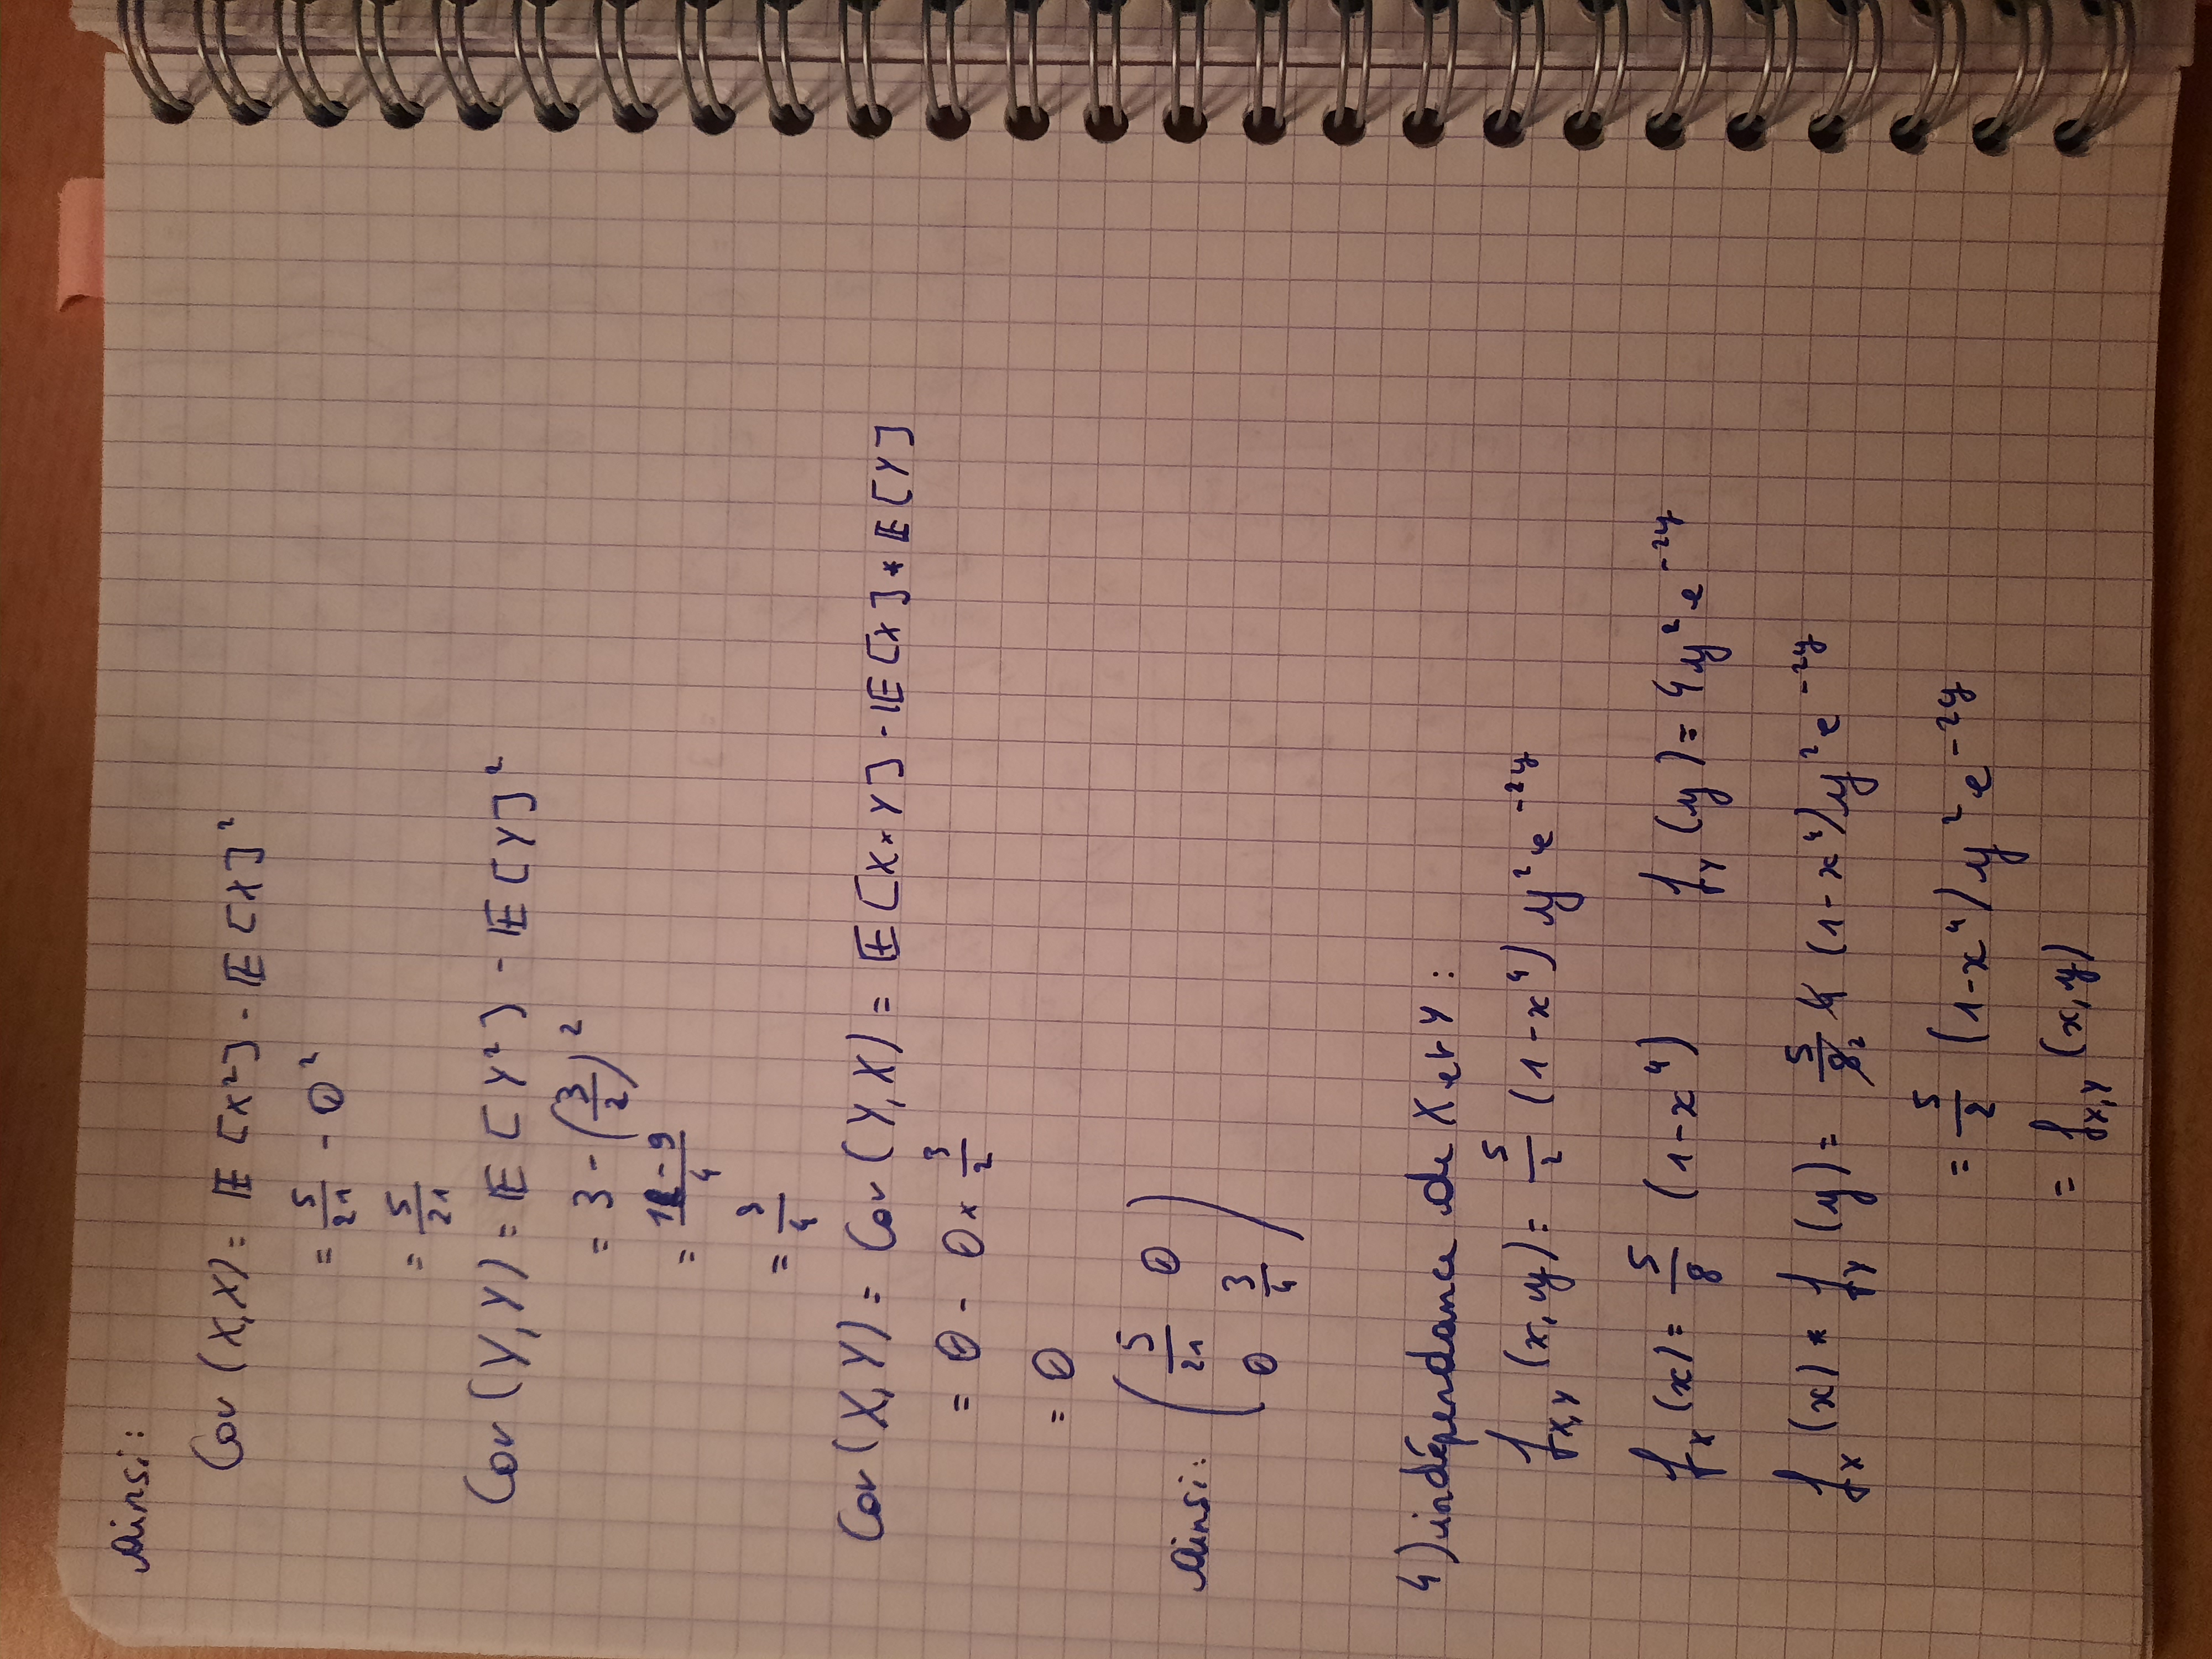 Ainsi:
Cov (X,X) = 𝔼[X²] - 𝔼[X]²
= 5/21 - 0²
= 5/21
Cov (Y,Y) = 𝔼[Y²] - 𝔼[Y]²
= 3 - (3/2)²
= (12 - 9)/4
= 3/4
Cov (X,Y) = Cov (Y,X) = 𝔼[X×Y] - 𝔼[X] * 𝔼[Y]
= 0 - 0 × 3/2
= 0
Ainsi: ( 5/21 0
0 3/4 )
4) indépendance de X et Y :
f_{X,Y} (x,y) = 5/2 (1-x⁴) y² e^{-2y}
f_X (x) = 5/8 (1-x⁴) f_Y (y) = 4y² e^{-2y}
f_X (x) * f_Y (y) = 5/8 2 4 (1-x⁴) y² e^{-2y}
= 5/2 (1-x⁴) y² e^{-2y}
= f_{X,Y} (x,y)